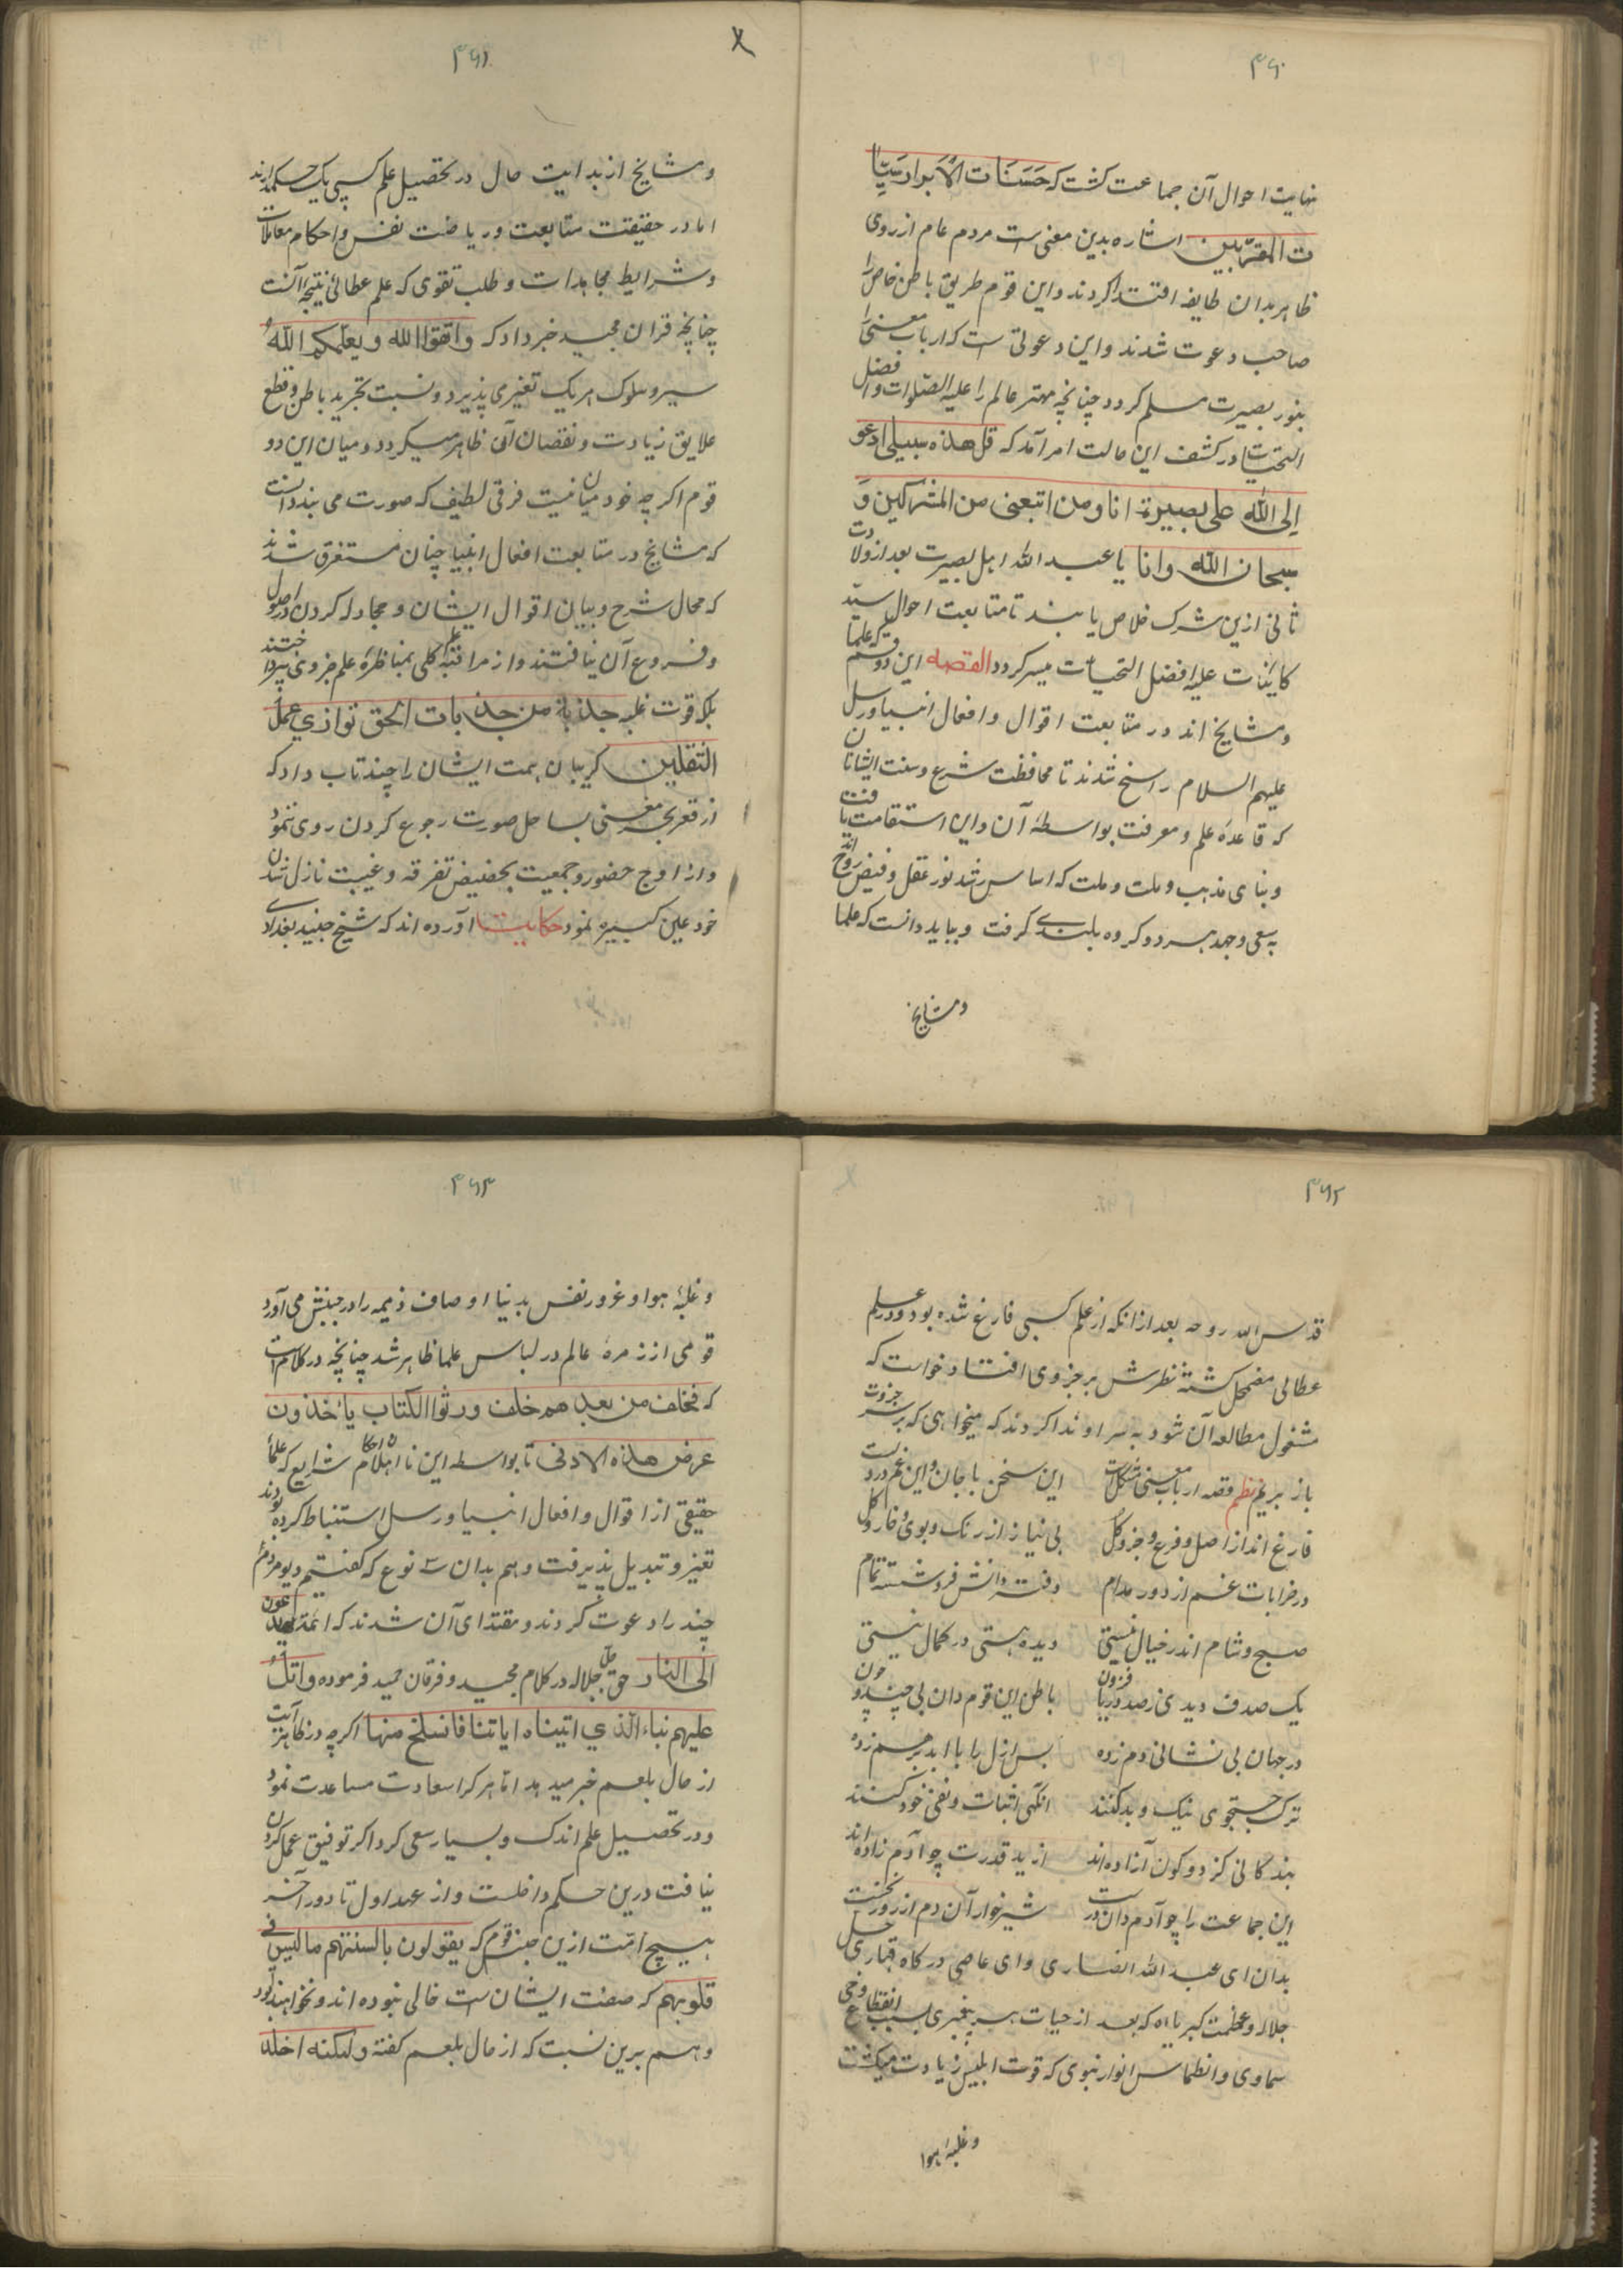 ۳۶۰
نهایت احوال آن جماعت کشت که حَسَنَات الْاَبرار سَیِّئا
ت المقرّبین اشاره بدین معنی است مردم عام از روی
ظاهر بدان طایفه اقتدا کردند و این قوم طریق باطن خاص را
صاحب دعوت شدند و این دعوتی است که ارباب معنی را
بنور بصیرت مسلم کردد چنانچه مهتر عالم را علیه الصّلوات و افضل
التحیّات در کشف این حالت امر آمد که قل هذه سبیلی ادعو
اِلی اللّه علی بصیرة انا ومن اتبعنی من المشرکین وَ
سبحان اللّه وانا یا عبد اللّه اهل بصیرت بعد از ولادت
ثانی ازین شرک خلاص یابند تا متابعت احوال سیّد
کاینات علیه افضل التحیّات میسر کردد القصه این دو قسم که علما
و مشایخ اند در متابعت اقوال و افعال انبیا و رسل
علیهم السلام راسخ شدند تا محافظت شرع و سنت ایشانان
که قاعدهٔ علم و معرفت بواسطهٔ آن و این استقامت یافت
و بنای مذهب و ملت و ملت که اساس رشد نور عقل و فیض روح اند
به سعی و جهد هر دو کروه بلندی کرفت و بباید دانست که علما
و مشایخ
۳۶۱
و مشایخ از بدایت حال در تحصیل علم کسبی یک حکم دارند
اما در حقیقت متابعت و ریاضت نفس و احکام معاملات
و شرایط مجاهدات و طلب تقوی که علم عطائی نتیجهٔ آنست
چنانچه قران مجید خبر داد که واتقوا اللّه ویعلّمکم اللّهُ
سیر و سلوک هر یک تغیر می پذیرد و نسبت تجرید باطن و قطع
علایق زیادت و نقصان آن ظاهر میکردد و میان این دو
قوم اکر چه خود میان نیست فرقی لطیف که صورت می بندد آنست
که مشایخ در متابعت افعال انبیا چنان مستغرق شدند
که مجال شرح و بیان اقوال ایشان و مجادله کردن در اصول
و فروع آن نیافتند و از مراقبهٔ کلی بمناظرهٔ علم جزوی نپرداختند
بلکه قوت غلبه جذبة من جذبات الحق توازي عمل
الثقلین کریبان همت ایشان را چند تاب داد که
از قعر بحر معنی بساحل صورت رجوع کردن روی ننمود
و از اوج حضور و جمعیت بحضیض تفرقه و غیبت نازل شدن
خود عین کبیره نمود حکایت آورده اند که شیخ جنید بغدادی
۳۶۲
قدس اللّه روحه بعد از انکه از علم کسبی فارغ شده بود و در علم
عطائی مضمحل کشته نظرش بر جزوی افتاد خواست که
مشغول مطالعه آن شود به سر او ندا کردند که میخواهی که بر سر جزوت
باز بریم نظم قصه ارباب معنی مشکل است این سخن با جان و این غم در دلست
فارغ اند از اصل و فرع و جزو و کل بی نیاز از رنک و بوی و خار و کل
در خرابات غم از دور مدام دفتر دانش فروشسته تمام
صبح و شام اندر خیال نیستی دیده هستی در کمال نیستی
یک صدف دیدی ز صد دریا فزون باطن این قوم دان بی چند و چون
در جهان بی نشانی دم زده بس ازل را با ابد بر هم زده
ترک جستجوی نیک و بد کنند انکهی اثبات و نفی خود کنند
بندکانی کز دو کون آزاده اند از ید قدرت چو آدم زاده اند
این جماعت را چو آدم دان درست شیرخوار آن دم از روز نخست
بدان ای عبد اللّه انصاری و ای عاصی درکاه قهاری جل
جلاله و عظمت کبریاءه که بعد از حیات هر پیغمبری بسبب انقطاع وحی
سماوی و انطماس انوار نبوی که قوت ابلیس زیادت میکشت
و غلبهٔ هوا
۳۶۳
و غلبهٔ هوا و غرور نفس بدنیا اوصاف ذمیمه را در جنبش می آورد
قومی از زمرهٔ عالم در لباس علما ظاهر شد چنانچه در کلام است
که فخلف من بعدهم خلف ورثوا الکتاب یاٴخذون
عرض هذه الادنی تا بواسطه این نااهلان احکام شرایع که علماٴ
حقیقی از اقوال و افعال انبیا و رسل استنباط کرده بودند
تغیر و تبدیل پذیرفت و هم بدان نوع که کفتیم دیو مردم
چند را دعوت کردند و مقتدای آن شدند که ائمة یدعون
الی النار حق جل جلاله در کلام مجید و فرقان حمید فرموده واتلُ
علیهم نباء الّذي اتیناه ایاتنا فانسلخ منها اکر چه در ظاهر آیت
از حال بلعم خبر میدهد اما هر کرا سعادت مساعدت نمود
و در تحصیل علم اندک و بسیار سعی کرد اکر توفیق عمل کردن
نیافت درین حکم داخلست و از عهد اول تا دور آخر
هیچ امّت ازین جنس قوم که یقولون بالسنتهم ما لیس فی
قلوبهم که صفت ایشان ست خالی نبوده اند و نخواهند بود
و هم برین نسبت که از حال بلعم کفته ولکنه اخلد